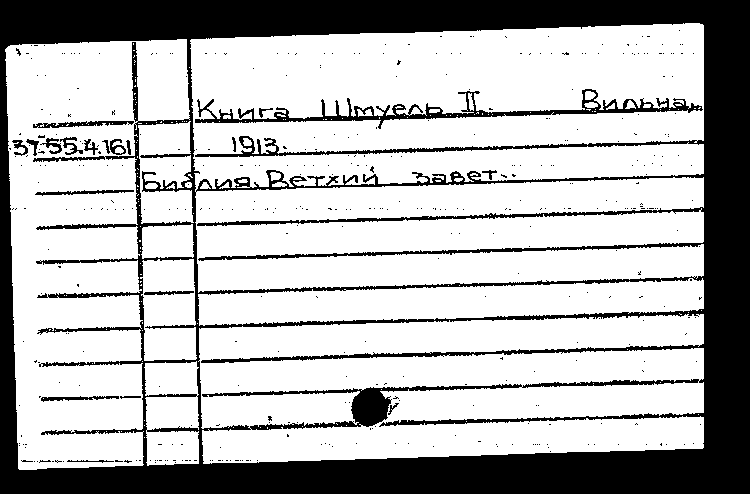 Книга Шмуель II. Вильна,
37.55.4.161 1913.
Библия. Ветхий завет.